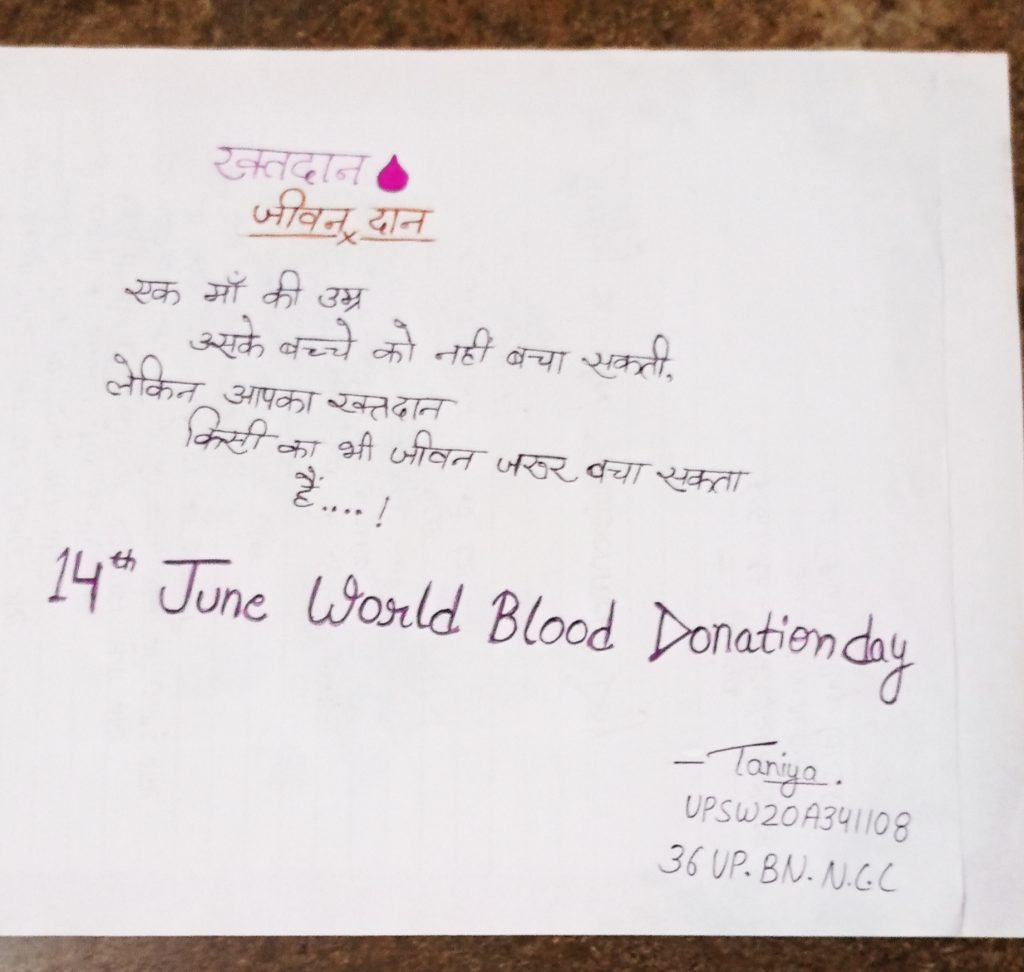 रक्तदान
जीवन दान
एक माँ की उम्र
उसके बच्चे को नहीं बचा सकती,
लेकिन आपका रक्तदान
किसी का भी जीवन जरूर बचा सकता
हैं....!
14th June World Blood Donation day
- Taniya.
UPSW20A341108
36 UP. BN. N.C.C